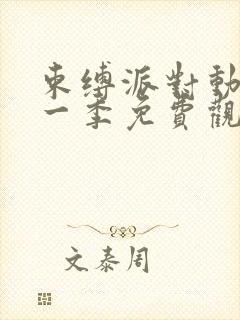 束縛派對動
一季免費觀
文泰周